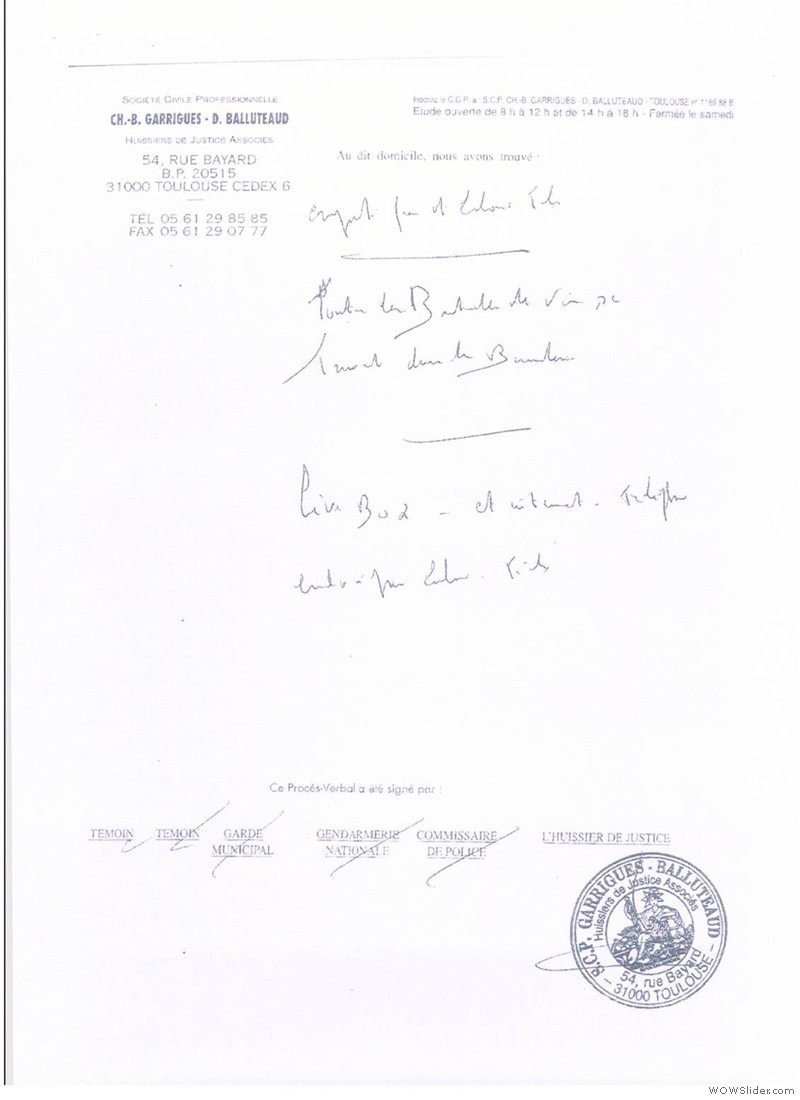 SOCIÉTÉ CIVILE PROFESSIONNELLE
CH.-B. GARRIGUES - D. BALLUTEAUD
HUISSIERS DE JUSTICE ASSOCIÉS
54, RUE BAYARD
B.P. 20515
31000 TOULOUSE CEDEX 6
TÉL 05 61 29 85 85
FAX 05 61 29 07 77
C.G.P. à : S.C.P. CH.-B. GARRIGUES - D. BALLUTEAUD - TOULOUSE n°
Etude ouverte de 8 h à 12 h et de 14 h à 18 h - Fermée le samedi
Au dit domicile, nous avons trouvé :
par et
Toutes les Bouteilles de vin se
Trouvant dans le Bureau
Live Box - et internet - Telephone
par
Ce Procès-Verbal a été signé par :
TEMOIN TEMOIN GARDE MUNICIPAL GENDARMERIE NATIONALE COMMISSAIRE DE POLICE L'HUISSIER DE JUSTICE
S.C.P. GARRIGUES - BALLUTEAUD
Huissiers de Justice Associés
54, rue Bayard
- 31000 TOULOUSE -
WOWSlider.com